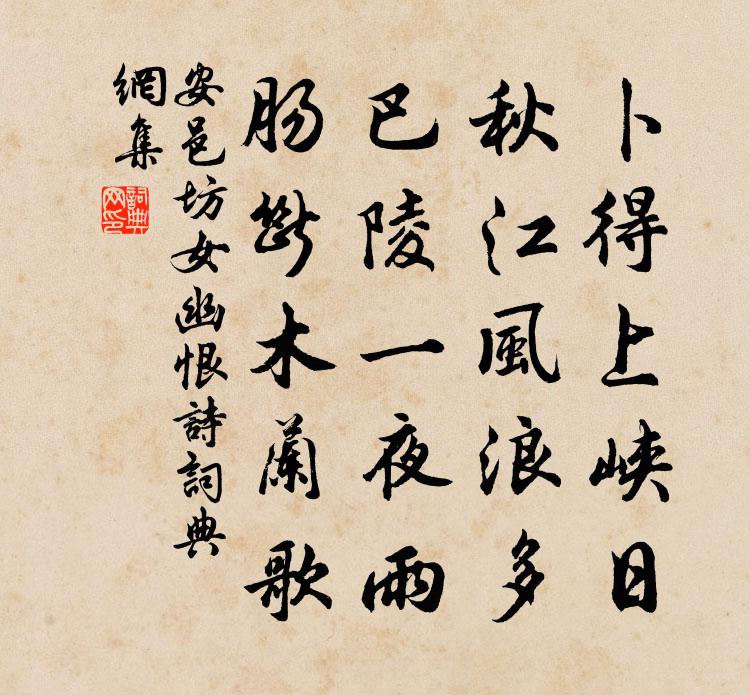 卜得上峡日
秋江風浪多
巴陵一夜雨
腸斷木蘭歌
安邑坊女幽恨詩詞典
網集
詞典
网印